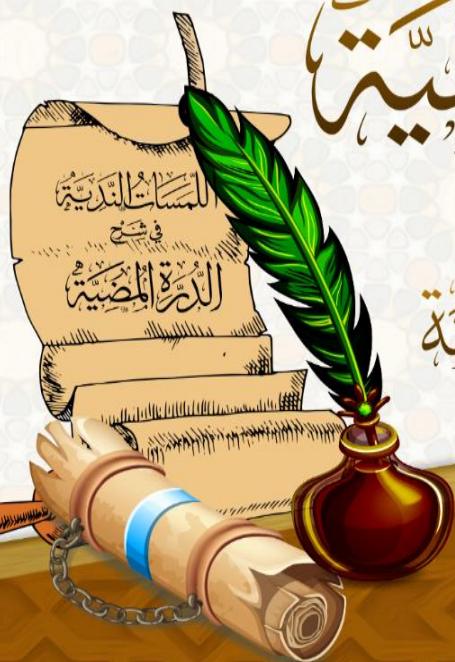 اللَّمَسَاتُ النَّدِيَّةُ
فِي شَرْحِ
الدُّرَّةِ الْمُضِيَّةِ